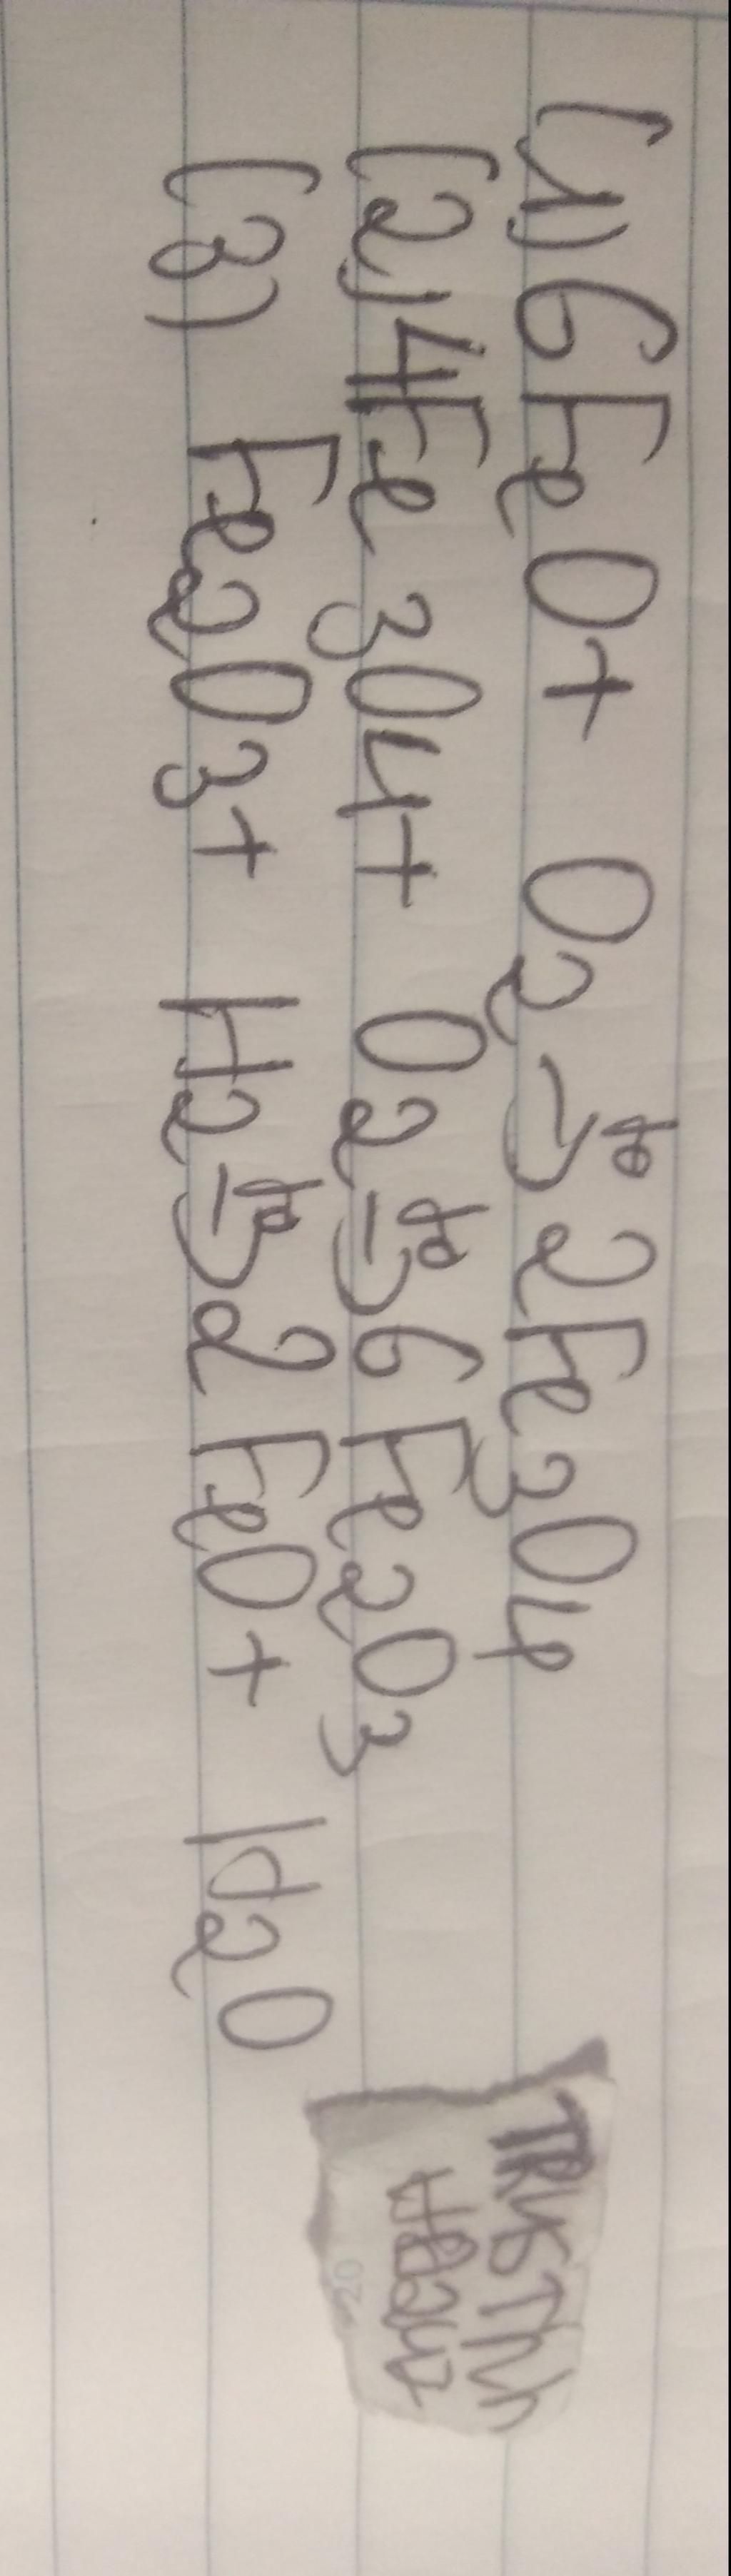 (1) 6FeO + O2 -> t° 2Fe3O4
(2) 4Fe3O4 + O2 -> t° 6Fe2O3
(3) Fe2O3 + H2 -> t° 2FeO + H2O